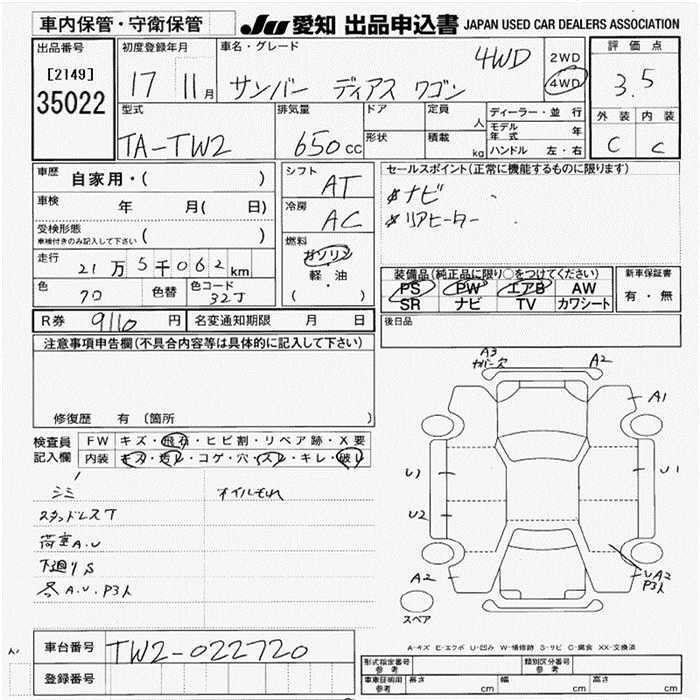 車内保管・守衛保管 JU 愛知 出品申込書 JAPAN USED CAR DEALERS ASSOCIATION
出品番号 初度登録年月 車名・グレード 4WD 2WD 評価点
[2149] 17 11月 サンバー ディアス ワゴン 4WD 3.5
35022 型式 排気量 ドア 定員 人 ディーラー・並行 外装 内装
TA-TW2 650cc 形状 積載 kg モデル年式 年 C C
ハンドル 左・右
車歴 自家用・( ) シフト AT セールスポイント(正常に機能するものに限ります)
車検 年 月( 日) 冷房 AC ナビ
受検形態 車検付きのみ記入して下さい ( ) リアヒーター
走行 21万5千062km 燃料 ガソリン 装備品(純正品に限り○をつけてください) 新車保証書
色 70 色替 色コード 32J 軽・油 PS PW エアB AW 有・無
( ) SR ナビ TV カワシート
R券 9110円 名変通知期限 月 日 後日品
注意事項申告欄(不具合内容等は具体的に記入して下さい)
修復歴 有 〔箇所 〕
検査員記入欄 FW キズ・飛石・ヒビ割・リペア跡・X要
内装 キズ・汚レ・コゲ・穴・スレ・キレ・破レ
シミ オイルもれ
スタッドレスT
荷室A.U
下廻りS
A.U.P3ヶ
A3 A2
A1
U1 U1
U2
A2 UA2
P3ヶ
スペア
車台番号 TW2-022720
登録番号
A-キズ E-エクボ U-凹み W-補修跡 S-サビ C-腐食 XX-交換済
形式指定番号 参考 類別区分番号 参考
車車証明用 参考 長さ cm 幅 cm 高さ cm